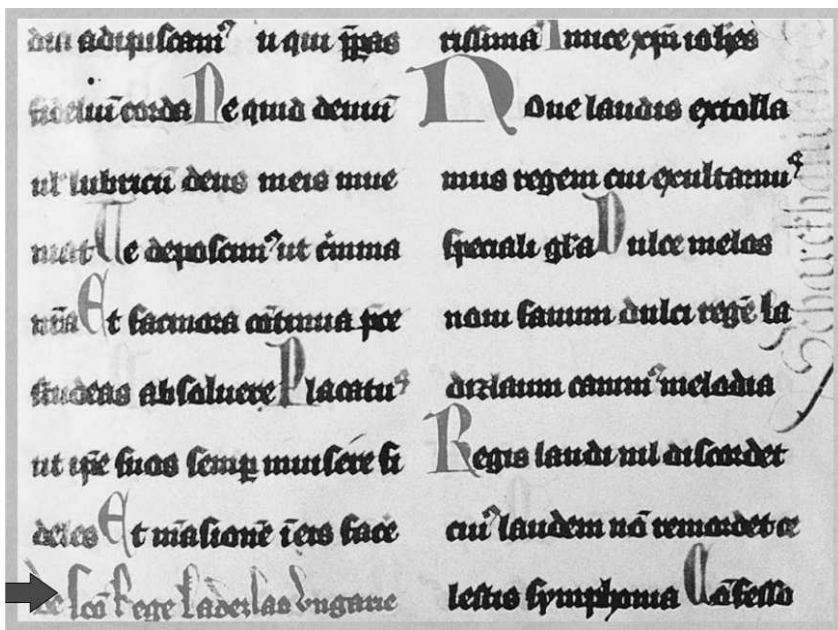 dui adipiscam᷒ u qui p̄pas
fideliū corda Ne quid deuiū
ul lubricū deus meis mue
niat Te deposcim᷒ ut c̄mina
nr̄a Et facinora cōtinua p̄ce
studeas absoluere Placatu᷒
ut ip̄e suos semꝑ miuisere fi
deles Et māsionē ī eis face
de sc̄o Rege Ladezlao vngarie
rissima Innice xp̄m ioh̄es
Noue laudis extolla
mus regem cui exultamu᷒
speciali gl̄a Dulce melos
noui fauum dulci regē la
dizlaum canim᷒ melodia
Regis laudi nil discordet
cui᷒ laudem nō remordet ce
lestis symphonia Cōfesso